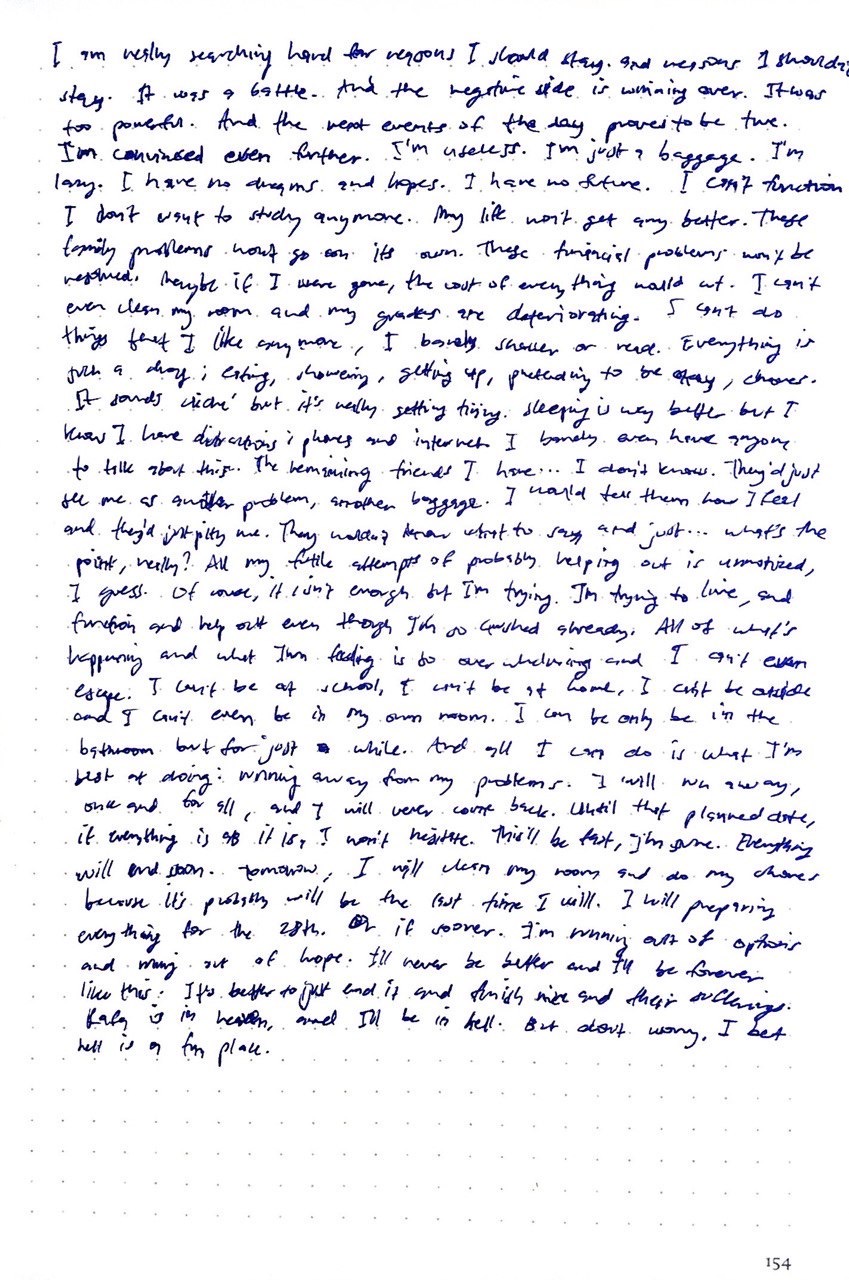 I am really searching hard for reasons I should stay. and reasons I shouldn't
stay. It was a battle. And the negative side is winning over. It was
too powerful. And the next events of the day proves to be true.
I'm convinced even further. I'm useless. I'm just a baggage. I'm
lazy. I have no dreams and hopes. I have no future. I can't function
I don't want to study anymore. My life won't get any better. These
family problems won't go on its own. These financial problems won't be
resolved. Maybe if I were gone, the cost of everything would cut. I can't
even clean my room and my grades are deteriorating. I can't do
things that I like anymore, I barely shower or read. Everything is
such a drag; eating, showering, getting up, pretending to be okay, chores.
It sounds cliché but it's really getting tiring. Sleeping is way better but I
know I have distractions; phones and internet. I barely even have anyone
to talk about this. The remaining friends I have... I don't know. They'd just
see me as another problem, another baggage. I would tell them how I feel
and they'd just pity me. They wouldn't know what to say and just... what's the
point, really? All my futile attempts of probably helping out is unnoticed,
I guess. Of course, it isn't enough but I'm trying. I'm trying to live, and
function and help out even though I'm so crushed already. All of what's
happening and what I'm feeling is so overwhelming and I can't even
escape. I can't be at school, I can't be at home, I can't be outside
and I can't even be in my own room. I can be only be in the
bathroom but for just a while. And all I can do is what I'm
best at doing: running away from my problems. I will run away,
once and for all, and I will never come back. Until that planned date,
if everything is as it is, I won't hesitate. This'll be fast, I'm sure. Everything
will end soon. Tomorrow, I will clean my room and do my chores
because it's probably will be the last time I will. I will preparing
everything for the 28th. Or if sooner. I'm running out of options
and running out of hope. I'll never be better and I'll be forever
like this. It's better to just end it and finish mine and their sufferings.
is in heaven, and I'll be in hell. But don't worry, I bet
hell is a fun place.